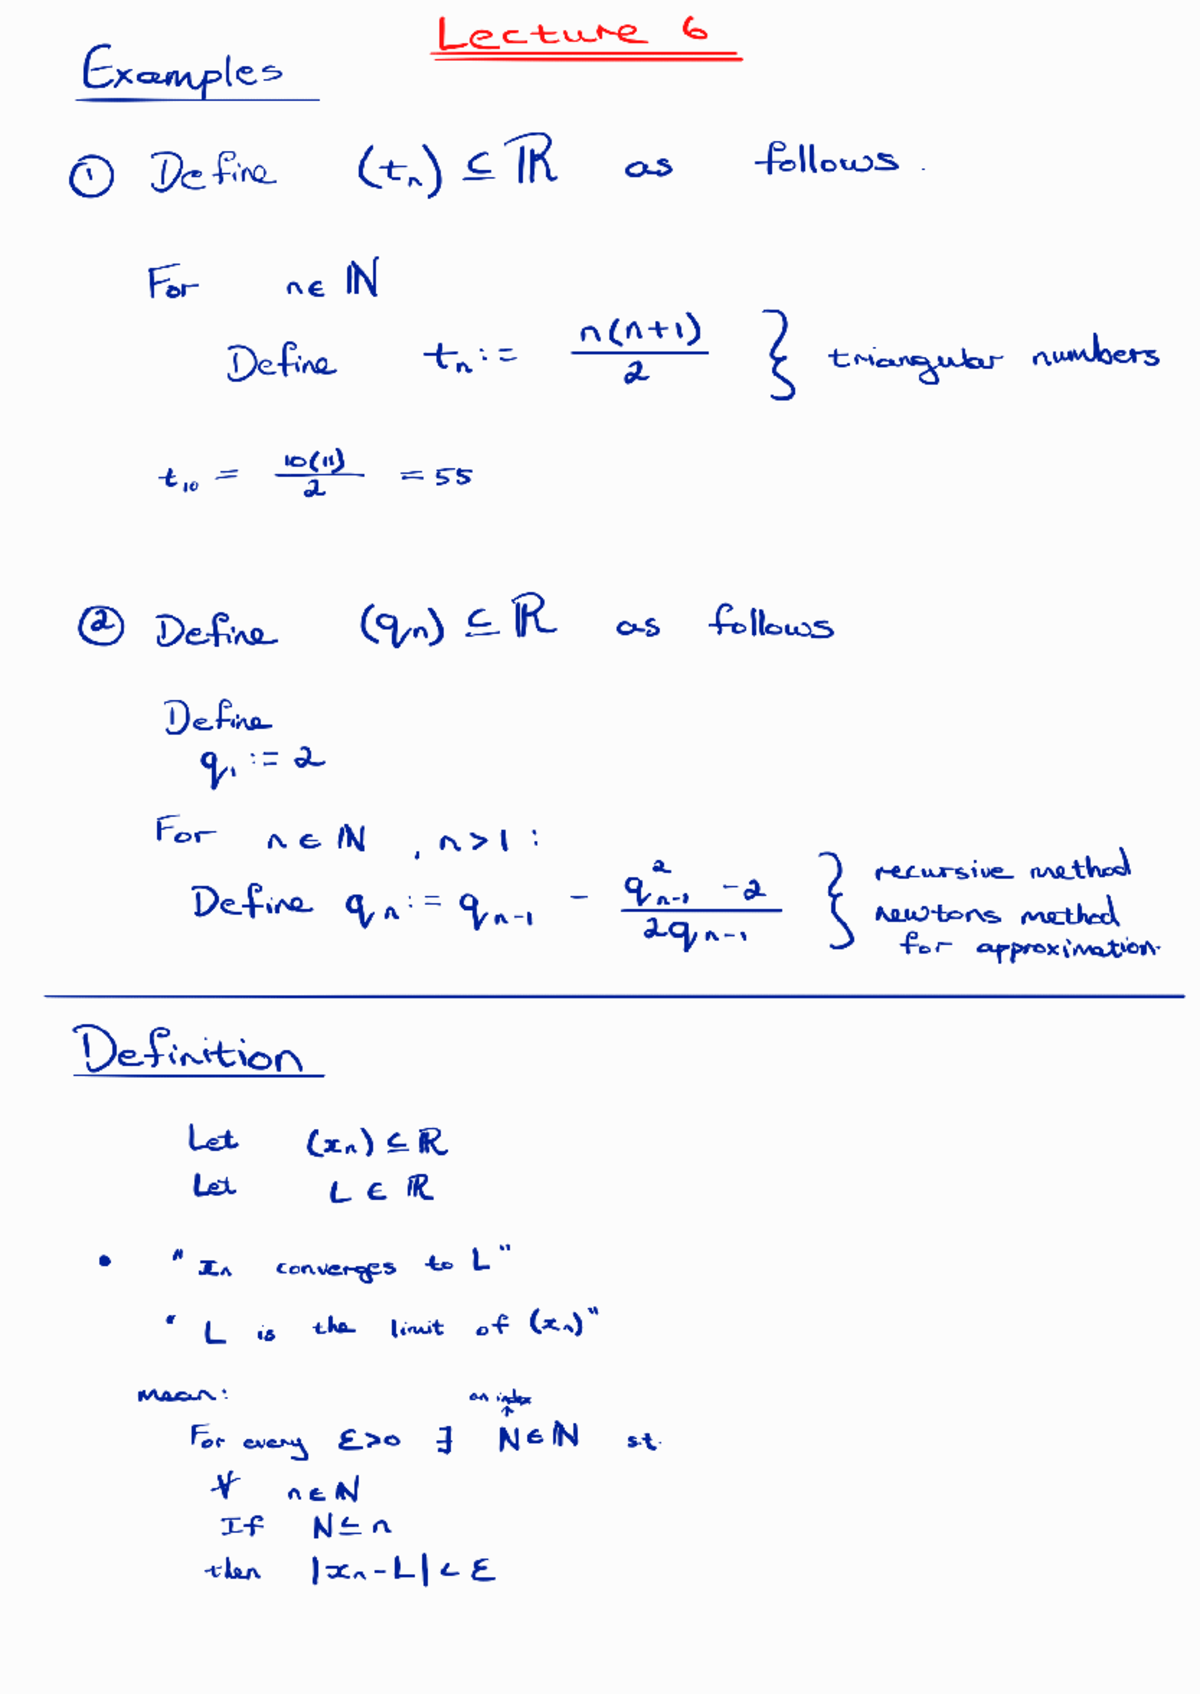 Lecture 6
Examples
① Define (tₙ) ⊆ ℝ as follows.
For n ∈ ℕ
Define tₙ := n(n+1)/2 } triangular numbers
t₁₀ = 10(11)/2 = 55
② Define (qₙ) ⊆ ℝ as follows
Define
q₁ := 2
For n ∈ ℕ, n > 1 :
Define qₙ := qₙ₋₁ - (q²ₙ₋₁ - 2)/(2qₙ₋₁) } recursive method
newtons method
for approximation.
Definition
Let (xₙ) ⊆ ℝ
Let L ∈ ℝ
• "xₙ converges to L"
"L is the limit of (xₙ)"
mean:
an index
↑
For every ε>0 ∃ N ∈ ℕ s.t.
∀ n ∈ ℕ
If N ≤ n
then |xₙ - L| < ε